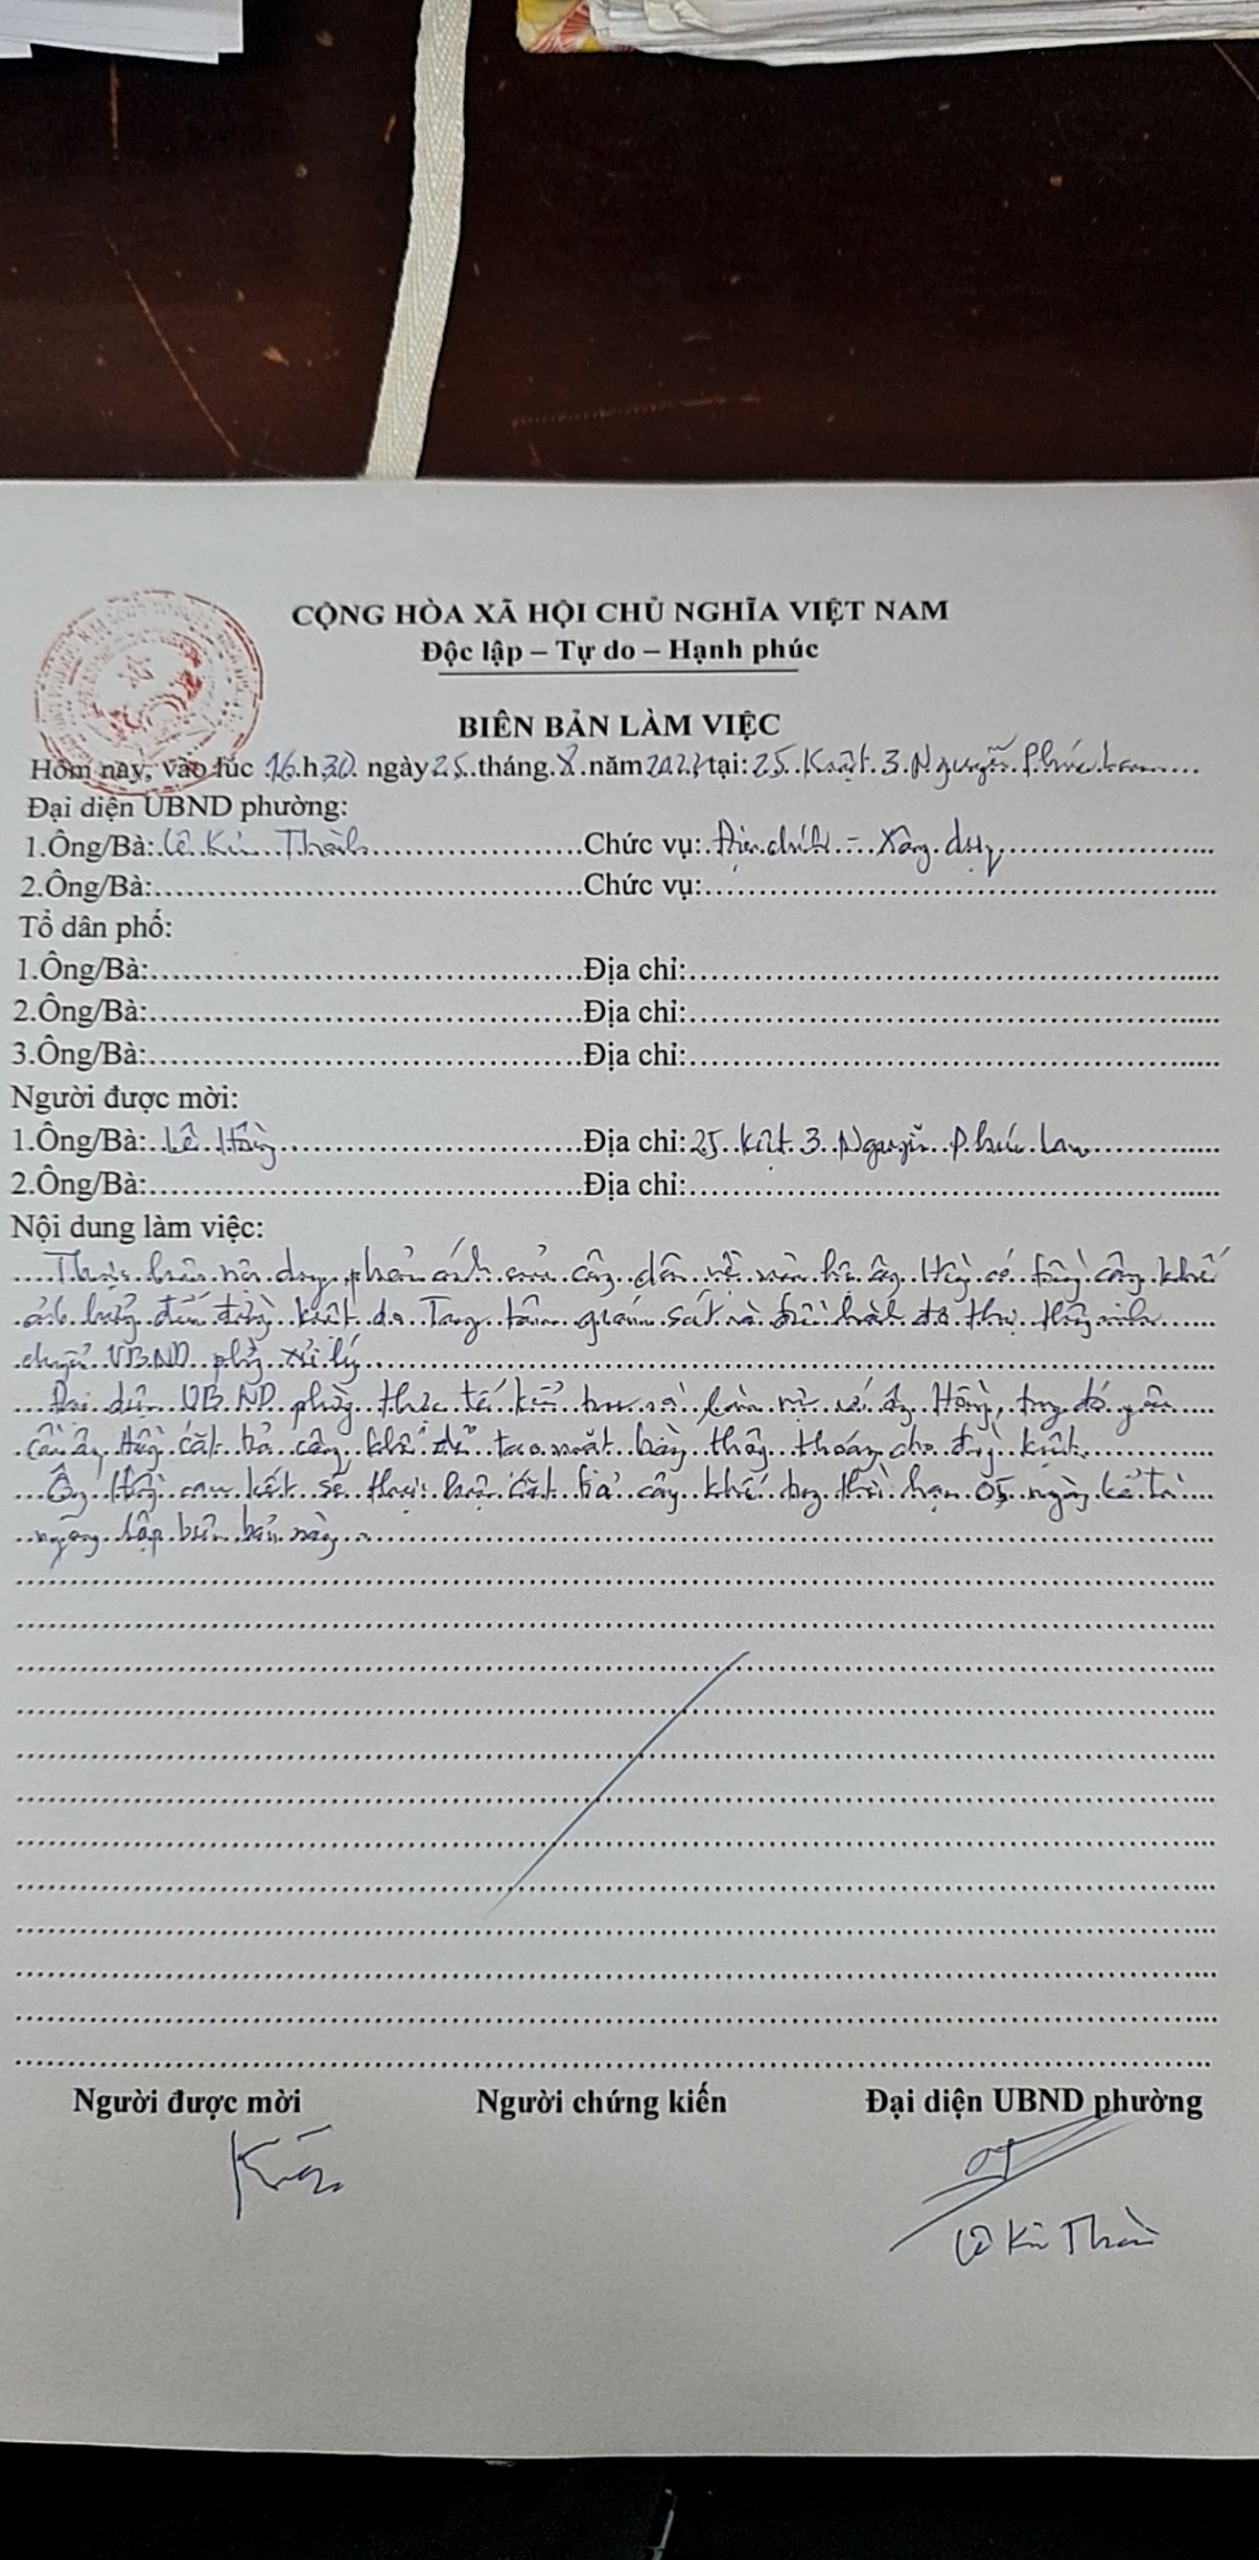 CỘNG HÒA XÃ HỘI CHỦ NGHĨA VIỆT NAM
Độc lập – Tự do – Hạnh phúc
BIÊN BẢN LÀM VIỆC
Hôm nay, vào lúc 16.h.30. ngày 25.tháng.8.năm 202 tại: 25. Kiệt. 3. Nguyễn. Phúc. Lan
Đại diện UBND phường:
1.Ông/Bà: Lê Kim Thành Chức vụ: Địa chính - Xây dựng
2.Ông/Bà: Chức vụ:
Tổ dân phố:
1.Ông/Bà: Địa chỉ:
2.Ông/Bà: Địa chỉ:
3.Ông/Bà: Địa chỉ:
Người được mời:
1.Ông/Bà: Lê Hồng Địa chỉ: 25 kiệt 3 Nguyễn Phúc Lan
2.Ông/Bà: Địa chỉ:
Nội dung làm việc:
nội dung phản ánh của công dân về có cây khế
ảnh hưởng đến đường kiệt do Trung tâm giám sát và điều hành đô thị thông minh
chuyển UBND phường xử lý
Đại diện UBND phường thực tế kiểm tra và làm việc với ông Hồng, trong đó yêu
cầu ông Hồng cắt bỏ cây khế để tạo mặt bằng thông thoáng cho đường kiệt.
Ông Hồng cam kết sẽ thực hiện cắt bỏ cây khế trong thời hạn 05 ngày kể từ
ngày lập biên bản này
Người được mời Người chứng kiến Đại diện UBND phường
Lê Kim Thành